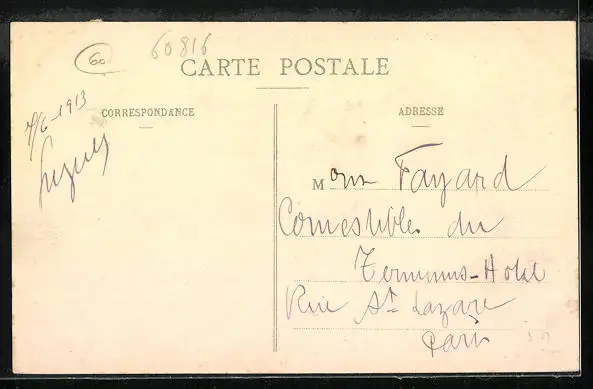 60
60816
CARTE POSTALE
CORRESPONDANCE
ADRESSE
4/6-1913
Monsr Fayard
Comestibles du
Terminus-Hotel
Rue St Lazare
Paris